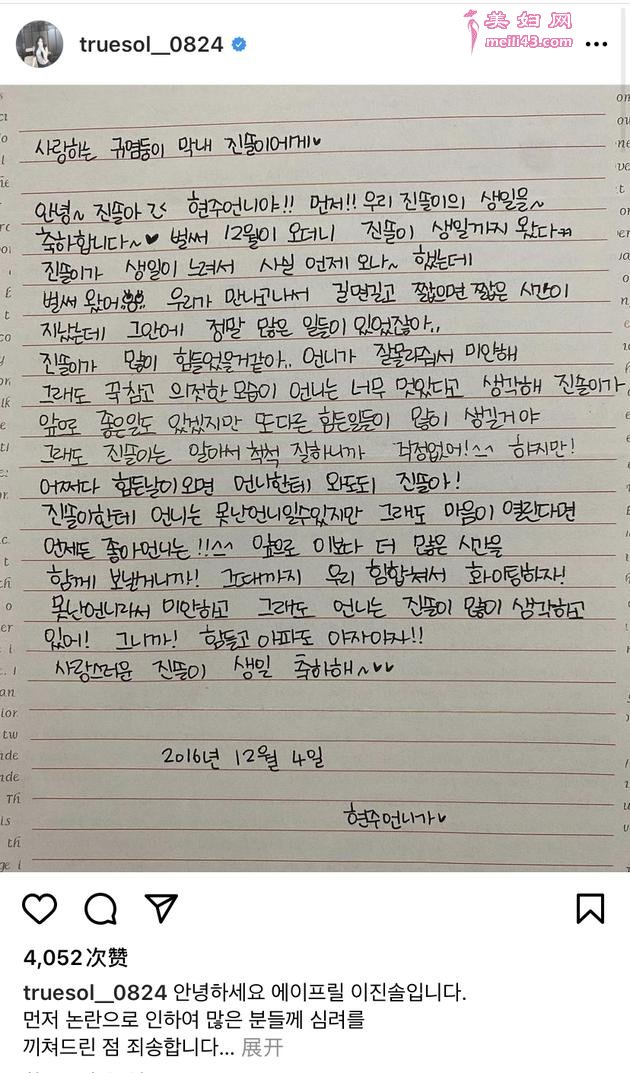 truesol__0824
美妇网
meili43.com
사랑하는 귀염둥이 막내 진쫄이에게♥
안녕~ 진쫄아 현주언니야!! 먼저!! 우리 진쫄이의 생일을~
축하합니다~♥ 벌써 12월이 오더니 진쫄이 생일까지 왔다ㅠㅠ
진쫄이가 생일이 느려서 사실 언제 오나~ 했는데
벌써 왔어 우리가 만나고나서 길면길고 짧으면 짧은 시간이
지났는데 그안에 정말 많은 일들이 있었잖아..
진쫄이가 많이 힘들었을거같아.. 언니가 잘몰라줘서 미안해
그래도 꾹참고 의젓한 모습이 언니는 너무 멋있다고 생각해 진쫄이가
앞으로 좋은일도 있겠지만 또다른 힘든일들이 많이 생길거야
그래도 진쫄이는 알아서 척척 잘하니까 걱정없어!^^ 하지만!
어쩌다 힘든날이오면 언니한테 와도돼 진쫄아!
진쫄이한테 언니는 못난언니일수있지만 그래도 마음이 열린다면
언제든 좋아언니는!!^^ 앞으로 이보다 더 많은 시간을
함께 보낼거니까! 그때까지 우리 힘합쳐서 화이팅하자!
못난언니라서 미안하고 그래도 언니는 진쫄이 많이 생각하고
있어! 그니까! 힘들고 아파도 아자아자!!
사랑스러운 진쫄이 생일 축하해~♥♥
2016년 12월 4일
현주언니가♥
4,052次赞
truesol__0824 안녕하세요 에이프릴 이진솔입니다.
먼저 논란으로 인하여 많은 분들께 심려를
끼쳐드린 점 죄송합니다... 展开